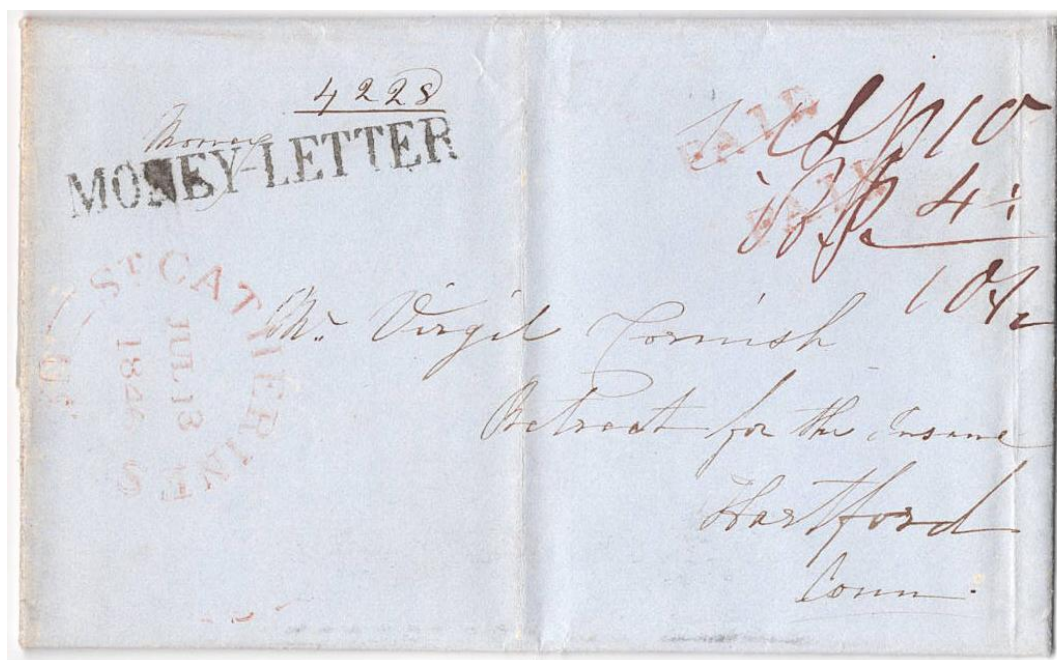 4228
Money
MONEY-LETTER
PAID
PAID
10
4
ST CATHERINES
JUL 13
1846
Mr. Virgil Cornish
Retreat for the Insane
Hartford
Conn.